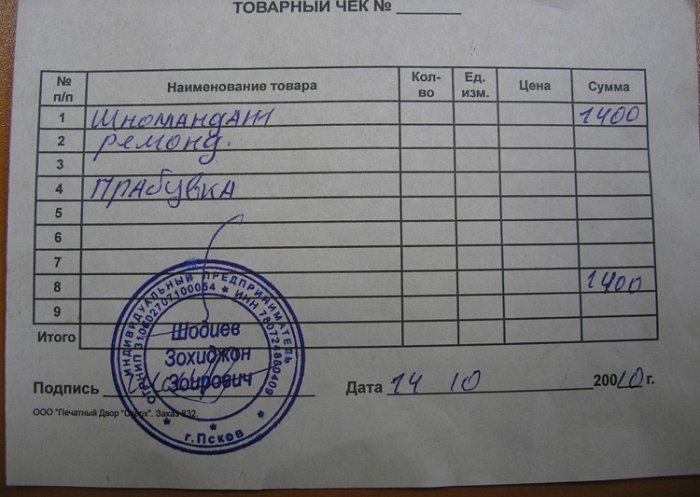 ТОВАРНЫЙ ЧЕК №
№ п/п Наименование товара Кол-во Ед. изм. Цена Сумма
1 Шномандаж 1400
2 ремонд.
3
4 прабувка
5
6
7
8 1400
9
Итого
ИНДИВИДУАЛЬНЫЙ ПРЕДПРИНИМАТЕЛЬ
ОГРНИП 310602707100054 * ИНН 780724860409
Шодиев
Зохиджон
Зоирович
* г.Псков *
Подпись Дата 14 10 200 10 г.
ООО "Печатный Двор "Стерх". Заказ 832.